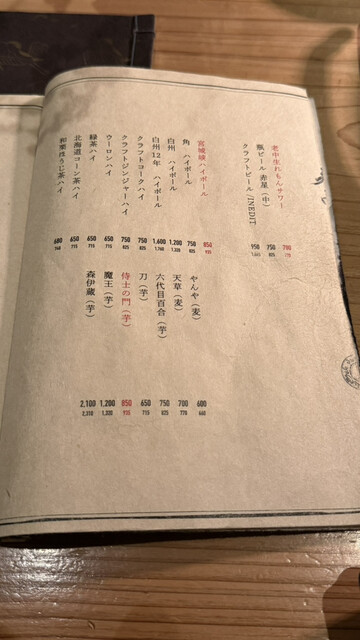 老中生れもんサワー 700
瓶ビール 赤星(中) 750 825
クラフトビール/INEDIT 950
宮城峡 ハイボール 850 935
角 ハイボール 750 825
白州 ハイボール 1,200 1,320
白州12年 ハイボール 1,600 1,760
クラフトコークハイ 750 825
クラフトジンジャーハイ 750 825
ウーロンハイ 650 715
緑茶ハイ 650 715
北海道コーン茶ハイ 650 715
和栗ほうじ茶ハイ 680 748
やんや(麦) 600 660
天草(麦) 700 770
六代目百合(芋) 750 825
刀(芋) 650 715
侍士の門(芋) 850 935
魔王(芋) 1,200 1,320
森伊蔵(芋) 2,100 2,310